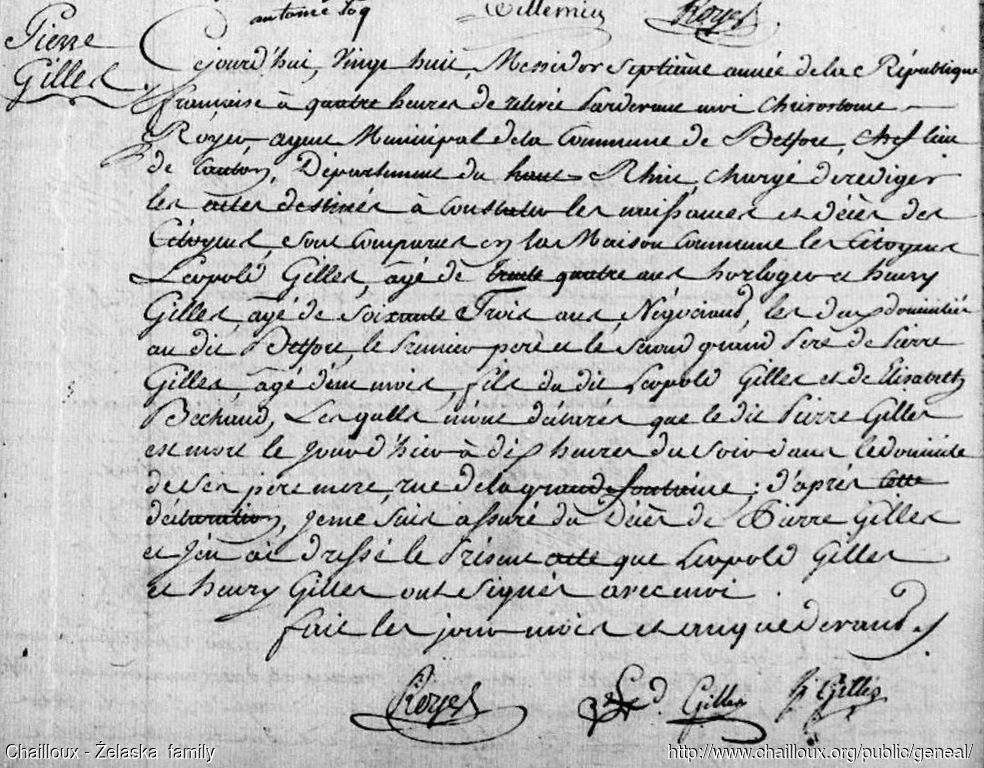 antoine Toq
Villemin Royer
Pierre
Gilles
Cejourd'hui, Vingt huit, Messidor Septième année de la République
française à quatre heures de relevée Pardevant moi Chrisostome
Royer, agent Municipal de la Commune de Belfort, chef lieu
de Canton, Département du haut Rhin, chargé de rediger
les actes destinés à constater les naissances et décès des
Citoyens, sont comparus en la Maison Commune les Citoyens
Léopold Gilles, âgé de trente quatre ans horloger et henry
Gilles, âgé de Soixante Trois ans, Négociand, les deux domiciliés
au dit Belfort, le Premier pere et le Second grand Pere de Pierre
Gilles âgé d'un mois, fils du dit Léopold Gilles et de Elisabeth
Bechaud, Lesquels m'ont déclarés que le dit Pierre Gilles
est mort le Jour d'hier à dix heures du Soir dans le domicile
de Ses pere mere, rue de la grande fontaine ; d'après cette
déclaration, Je me suis assuré du Décès de Pierre Gilles
et J'en ai dressé le Présent acte que Léopold Gilles
et henry Gilles ont Signés avec moi .
fait les jour mois et an que devant.
Royer Ld. Gilles h Gilles
Chailloux - Želaska family http://www.chailloux.org/public/geneal/